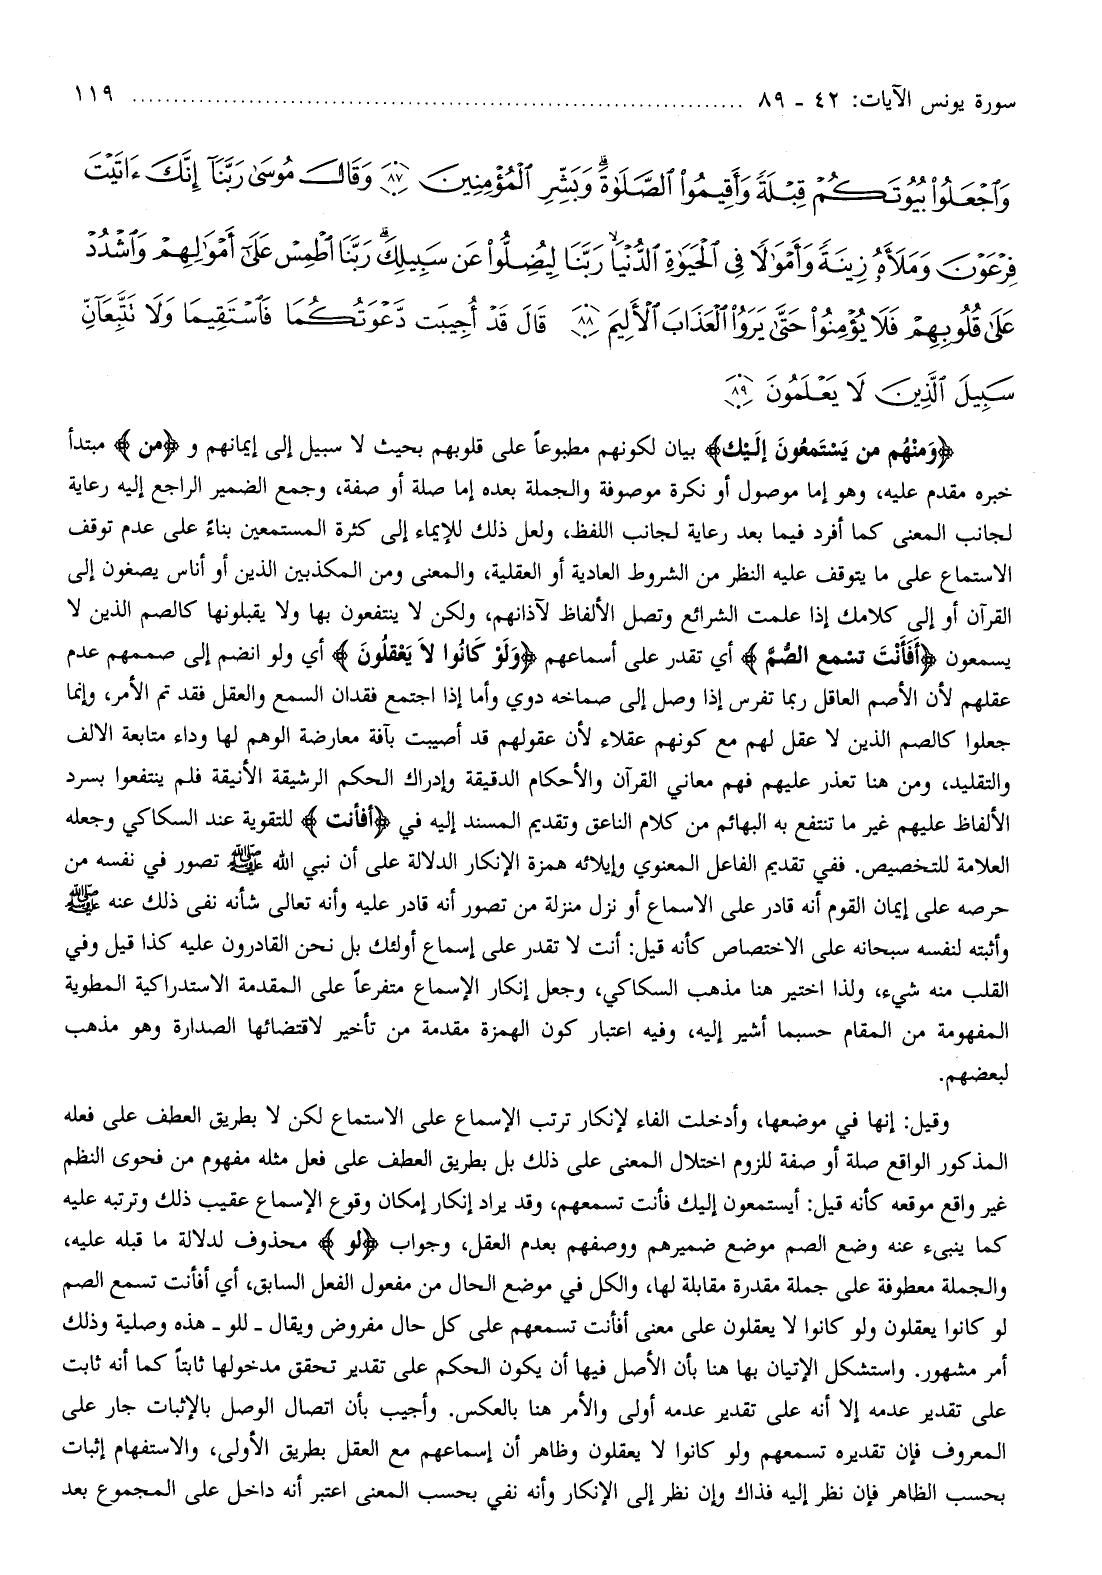 سورة يونس الآيات: ٤٢ - ٨٩ ........................................................................... ١١٩
وَٱجۡعَلُواْ بُيُوتَكُمۡ قِبۡلَةٗ وَأَقِيمُواْ ٱلصَّلَوٰةَۗ وَبَشِّرِ ٱلۡمُؤۡمِنِينَ ٨٧ وَقَالَ مُوسَىٰ رَبَّنَآ إِنَّكَ ءَاتَيۡتَ
فِرۡعَوۡنَ وَمَلَأَهُۥ زِينَةٗ وَأَمۡوَٰلٗا فِي ٱلۡحَيَوٰةِ ٱلدُّنۡيَا رَبَّنَا لِيُضِلُّواْ عَن سَبِيلِكَۖ رَبَّنَا ٱطۡمِسۡ عَلَىٰٓ أَمۡوَٰلِهِمۡ وَٱشۡدُدۡ
عَلَىٰ قُلُوبِهِمۡ فَلَا يُؤۡمِنُواْ حَتَّىٰ يَرَوُاْ ٱلۡعَذَابَ ٱلۡأَلِيمَ ٨٨ قَالَ قَدۡ أُجِيبَت دَّعۡوَتُكُمَا فَٱسۡتَقِيمَا وَلَا تَتَّبِعَآنِّ
سَبِيلَ ٱلَّذِينَ لَا يَعۡلَمُونَ ٨٩
﴿وَمَنْهُم من يَسْتَمعُونَ إلَيْك﴾ بيان لكونهم مطبوعاً على قلوبهم بحيث لا سبيل إلى إيمانهم و ﴿من﴾ مبتدأ
خبره مقدم عليه، وهو إما موصول أو نكرة موصوفة والجملة بعده إما صلة أو صفة، وجمع الضمير الراجع إليه رعاية
لجانب المعنى كما أفرد فيما بعد رعاية لجانب اللفظ، ولعل ذلك للإيماء إلى كثرة المستمعين بناءً على عدم توقف
الاستماع على ما يتوقف عليه النظر من الشروط العادية أو العقلية، والمعنى ومن المكذبين الذين أو أناس يصغون إلى
القرآن أو إلى كلامك إذا علمت الشرائع وتصل الألفاظ لآذانهم، ولكن لا ينتفعون بها ولا يقبلونها كالصم الذين لا
يسمعون ﴿أَفَأَنْتَ تسْمع الصُّمَّ﴾ أي تقدر على أسماعهم ﴿وَلَوْ كَانُوا لاَ يَعْقلُونَ﴾ أي ولو انضم إلى صممهم عدم
عقلهم لأن الأصم العاقل ربما تفرس إذا وصل إلى صماخه دوي وأما إذا اجتمع فقدان السمع والعقل فقد تم الأمر، وإنما
جعلوا كالصم الذين لا عقل لهم مع كونهم عقلاء لأن عقولهم قد أصيبت بآفة معارضة الوهم لها وداء متابعة الالف
والتقليد، ومن هنا تعذر عليهم فهم معاني القرآن والأحكام الدقيقة وإدراك الحكم الرشيقة الأنيقة فلم ينتفعوا بسرد
الألفاظ عليهم غير ما تنتفع به البهائم من كلام الناعق وتقديم المسند إليه في ﴿أفأنت﴾ للتقوية عند السكاكي وجعله
العلامة للتخصيص. ففي تقديم الفاعل المعنوي وإيلائه همزة الإنكار الدلالة على أن نبي الله ﷺ تصور في نفسه من
حرصه على إيمان القوم أنه قادر على الاسماع أو نزل منزلة من تصور أنه قادر عليه وأنه تعالى شأنه نفى ذلك عنه ﷺ
وأثبته لنفسه سبحانه على الاختصاص كأنه قيل: أنت لا تقدر على إسماع أولئك بل نحن القادرون عليه كذا قيل وفي
القلب منه شيء، ولذا اختير هنا مذهب السكاكي، وجعل إنكار الإسماع متفرعاً على المقدمة الاستدراكية المطوية
المفهومة من المقام حسبما أشير إليه، وفيه اعتبار كون الهمزة مقدمة من تأخير لاقتضائها الصدارة وهو مذهب
لبعضهم.
وقيل: إنها في موضعها، وأدخلت الفاء لإنكار ترتب الإسماع على الاستماع لكن لا بطريق العطف على فعله
المذكور الواقع صلة أو صفة للزوم اختلال المعنى على ذلك بل بطريق العطف على فعل مثله مفهوم من فحوى النظم
غير واقع موقعه كأنه قيل: أيستمعون إليك فأنت تسمعهم، وقد يراد إنكار إمكان وقوع الإسماع عقيب ذلك وترتبه عليه
كما ينبىء عنه وضع الصم موضع ضميرهم ووصفهم بعدم العقل، وجواب ﴿لو﴾ محذوف لدلالة ما قبله عليه،
والجملة معطوفة على جملة مقدرة مقابلة لها، والكل في موضع الحال من مفعول الفعل السابق، أي أفأنت تسمع الصم
لو كانوا يعقلون ولو كانوا لا يعقلون على معنى أفأنت تسمعهم على كل حال مفروض ويقال ـ للو ـ هذه وصلية وذلك
أمر مشهور. واستشكل الإتيان بها هنا بأن الأصل فيها أن يكون الحكم على تقدير تحقق مدخولها ثابتاً كما أنه ثابت
على تقدير عدمه إلا أنه على تقدير عدمه أولى والأمر هنا بالعكس. وأجيب بأن اتصال الوصل بالإثبات جار على
المعروف فإن تقديره تسمعهم ولو كانوا لا يعقلون وظاهر أن إسماعهم مع العقل بطريق الأولى، والاستفهام إثبات
بحسب الظاهر فإن نظر إليه فذاك وإن نظر إلى الإنكار وأنه نفي بحسب المعنى اعتبر أنه داخل على المجموع بعد